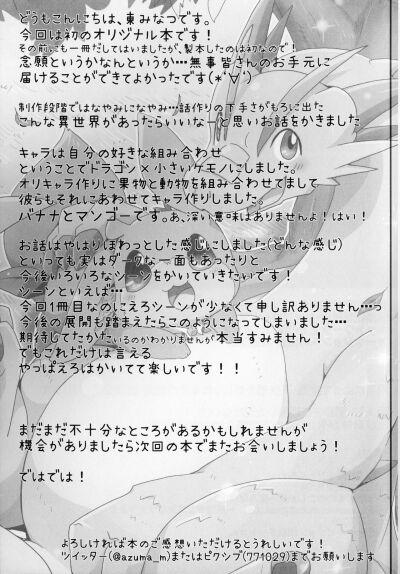 どうもこんにちは、東みなつです。
今回は初のオリジナル本です！
その前にも一冊だしてはいましたが、製本したのは初なので！
念願というかなんというか…無事皆さんのお手元に
届けることができてよかったです(*'∀')
制作段階ではなやみになやみ…話作りの下手さがもろに出た
こんな異世界があったらいいなーと思いお話をかきました
キャラは自分の好きな組み合わせ
ということでドラゴン×小さいケモノにしました。
オリキャラ作りに果物と動物を組み合わせてまして
彼らもそれにあわせてキャラ作りしました。
バナナとマンゴーです。あ、深い意味はありませんよ！はい！
お話はやはりほわっとした感じにしました(どんな感じ)
といっても実はダークな一面もあったりと
今後いろいろなシーンをかいていきたいです！
シーンといえば…
今回1冊目なのにえろシーンが少なくて申し訳ありません…っ
今後の展開も踏まえたらこのようになってしまいました…
期待してたかたいるのかわかりませんが本当すみません！
でもこれだけは言える
やっぱえろはかいてて楽しいです！！
まだまだ不十分なところがあるかもしれませんが
機会がありましたら次回の本でまたお会いしましょう！
ではでは！
よろしければ本のご感想いただけるとうれしいです！
ツイッター(@azuma_m)またはピクシブ(771029)までお願いします